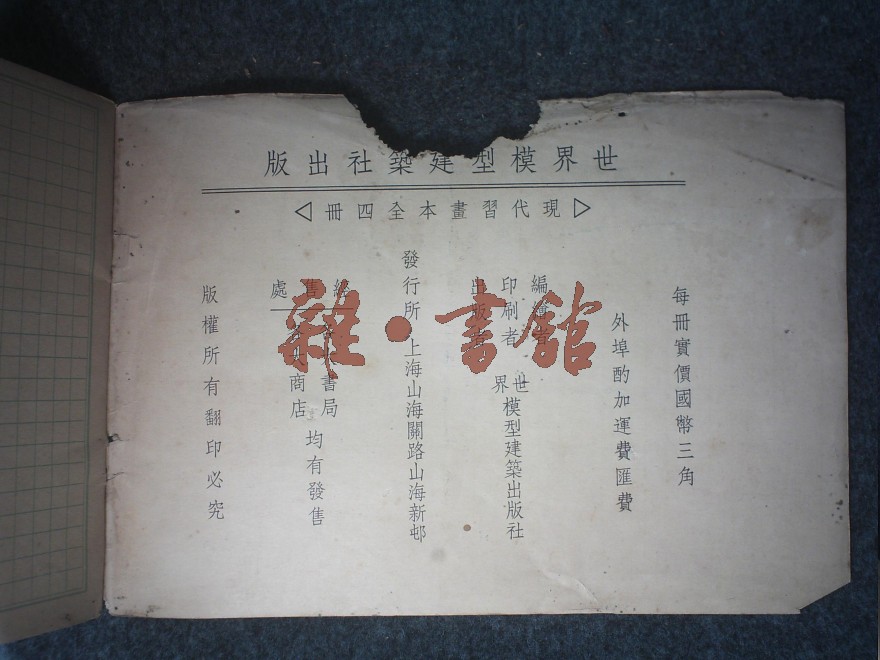 世界模型建築社出版
▷現代習畫本全四冊◁
每冊實價國幣三角
外埠酌加運費匯費
編者
印刷者
出版者
世界模型建築出版社
發行所 上海山海關路山海新邨
經售處
書局
商店
均有發售
版權所有翻印必究
雜·書館